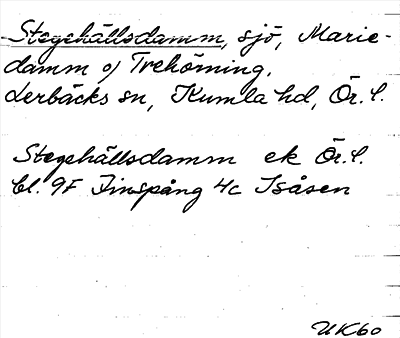 Stegehällsdamm, sjö, Marie-
damm o/ Trehörning.
Lerbäcks sn, Kumla hd, Ör. l.
Stegehällsdamm ek Ör. l.
bl. 9F Finspång 4c Isåsen
UK60